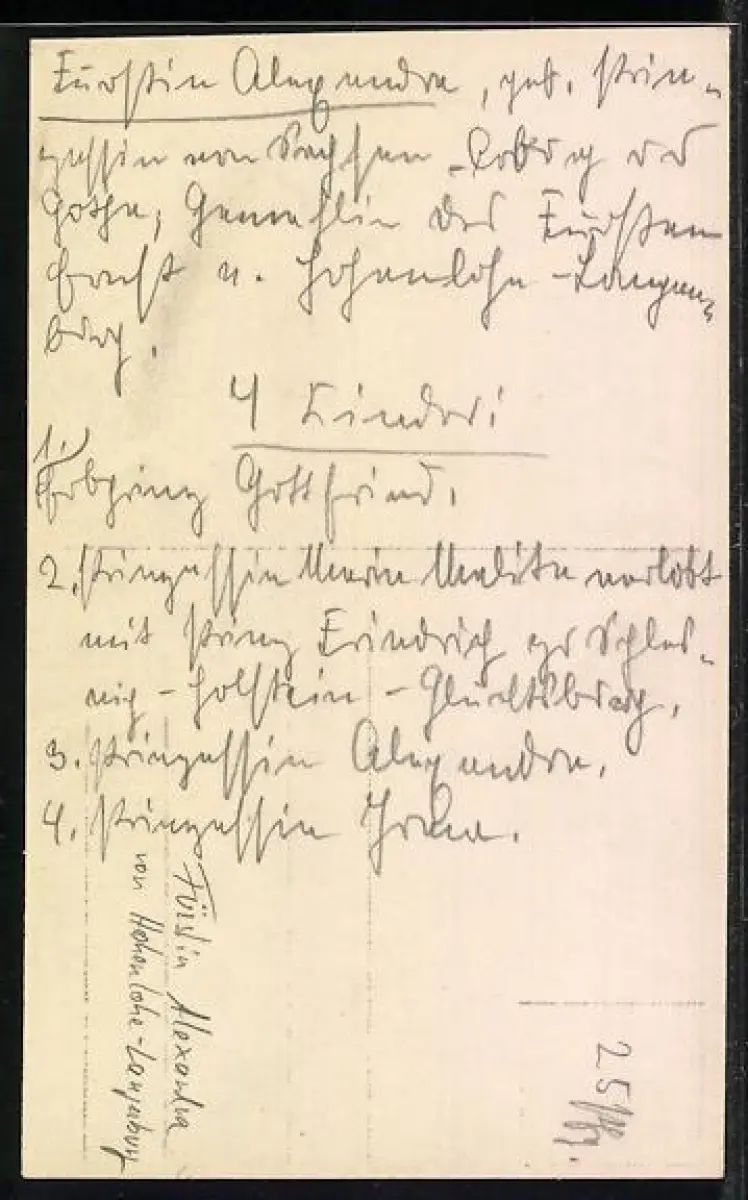 Fürstin Alexandra, geb. Prin-
zessin von Sachsen-Coburg und
Gotha, Gemahlin des Fürsten
Ernst v. Hohenlohe-Langen-
burg.
4 Kinder:
1.) Erbprinz Gottfried.
2. Prinzessin Marie Melita verlobt
mit Prinz Friedrich zu Schles-
wig-Holstein-Glücksburg.
3. Prinzessin Alexandra.
4. Prinzessin Irma.
Fürstin Alexandra
von Hohenlohe-Langenburg
25/